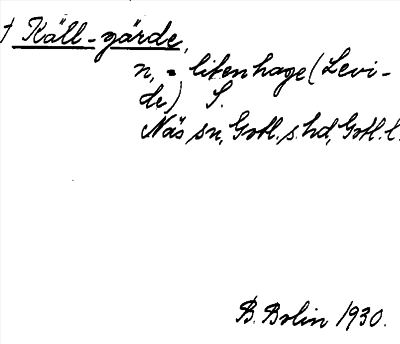 † Käll-gärde,
n. = liten hage (Levi-
de) S.
Näs sn, Gotl. s. hd, Gotl. l.
B. Bolin 1930.